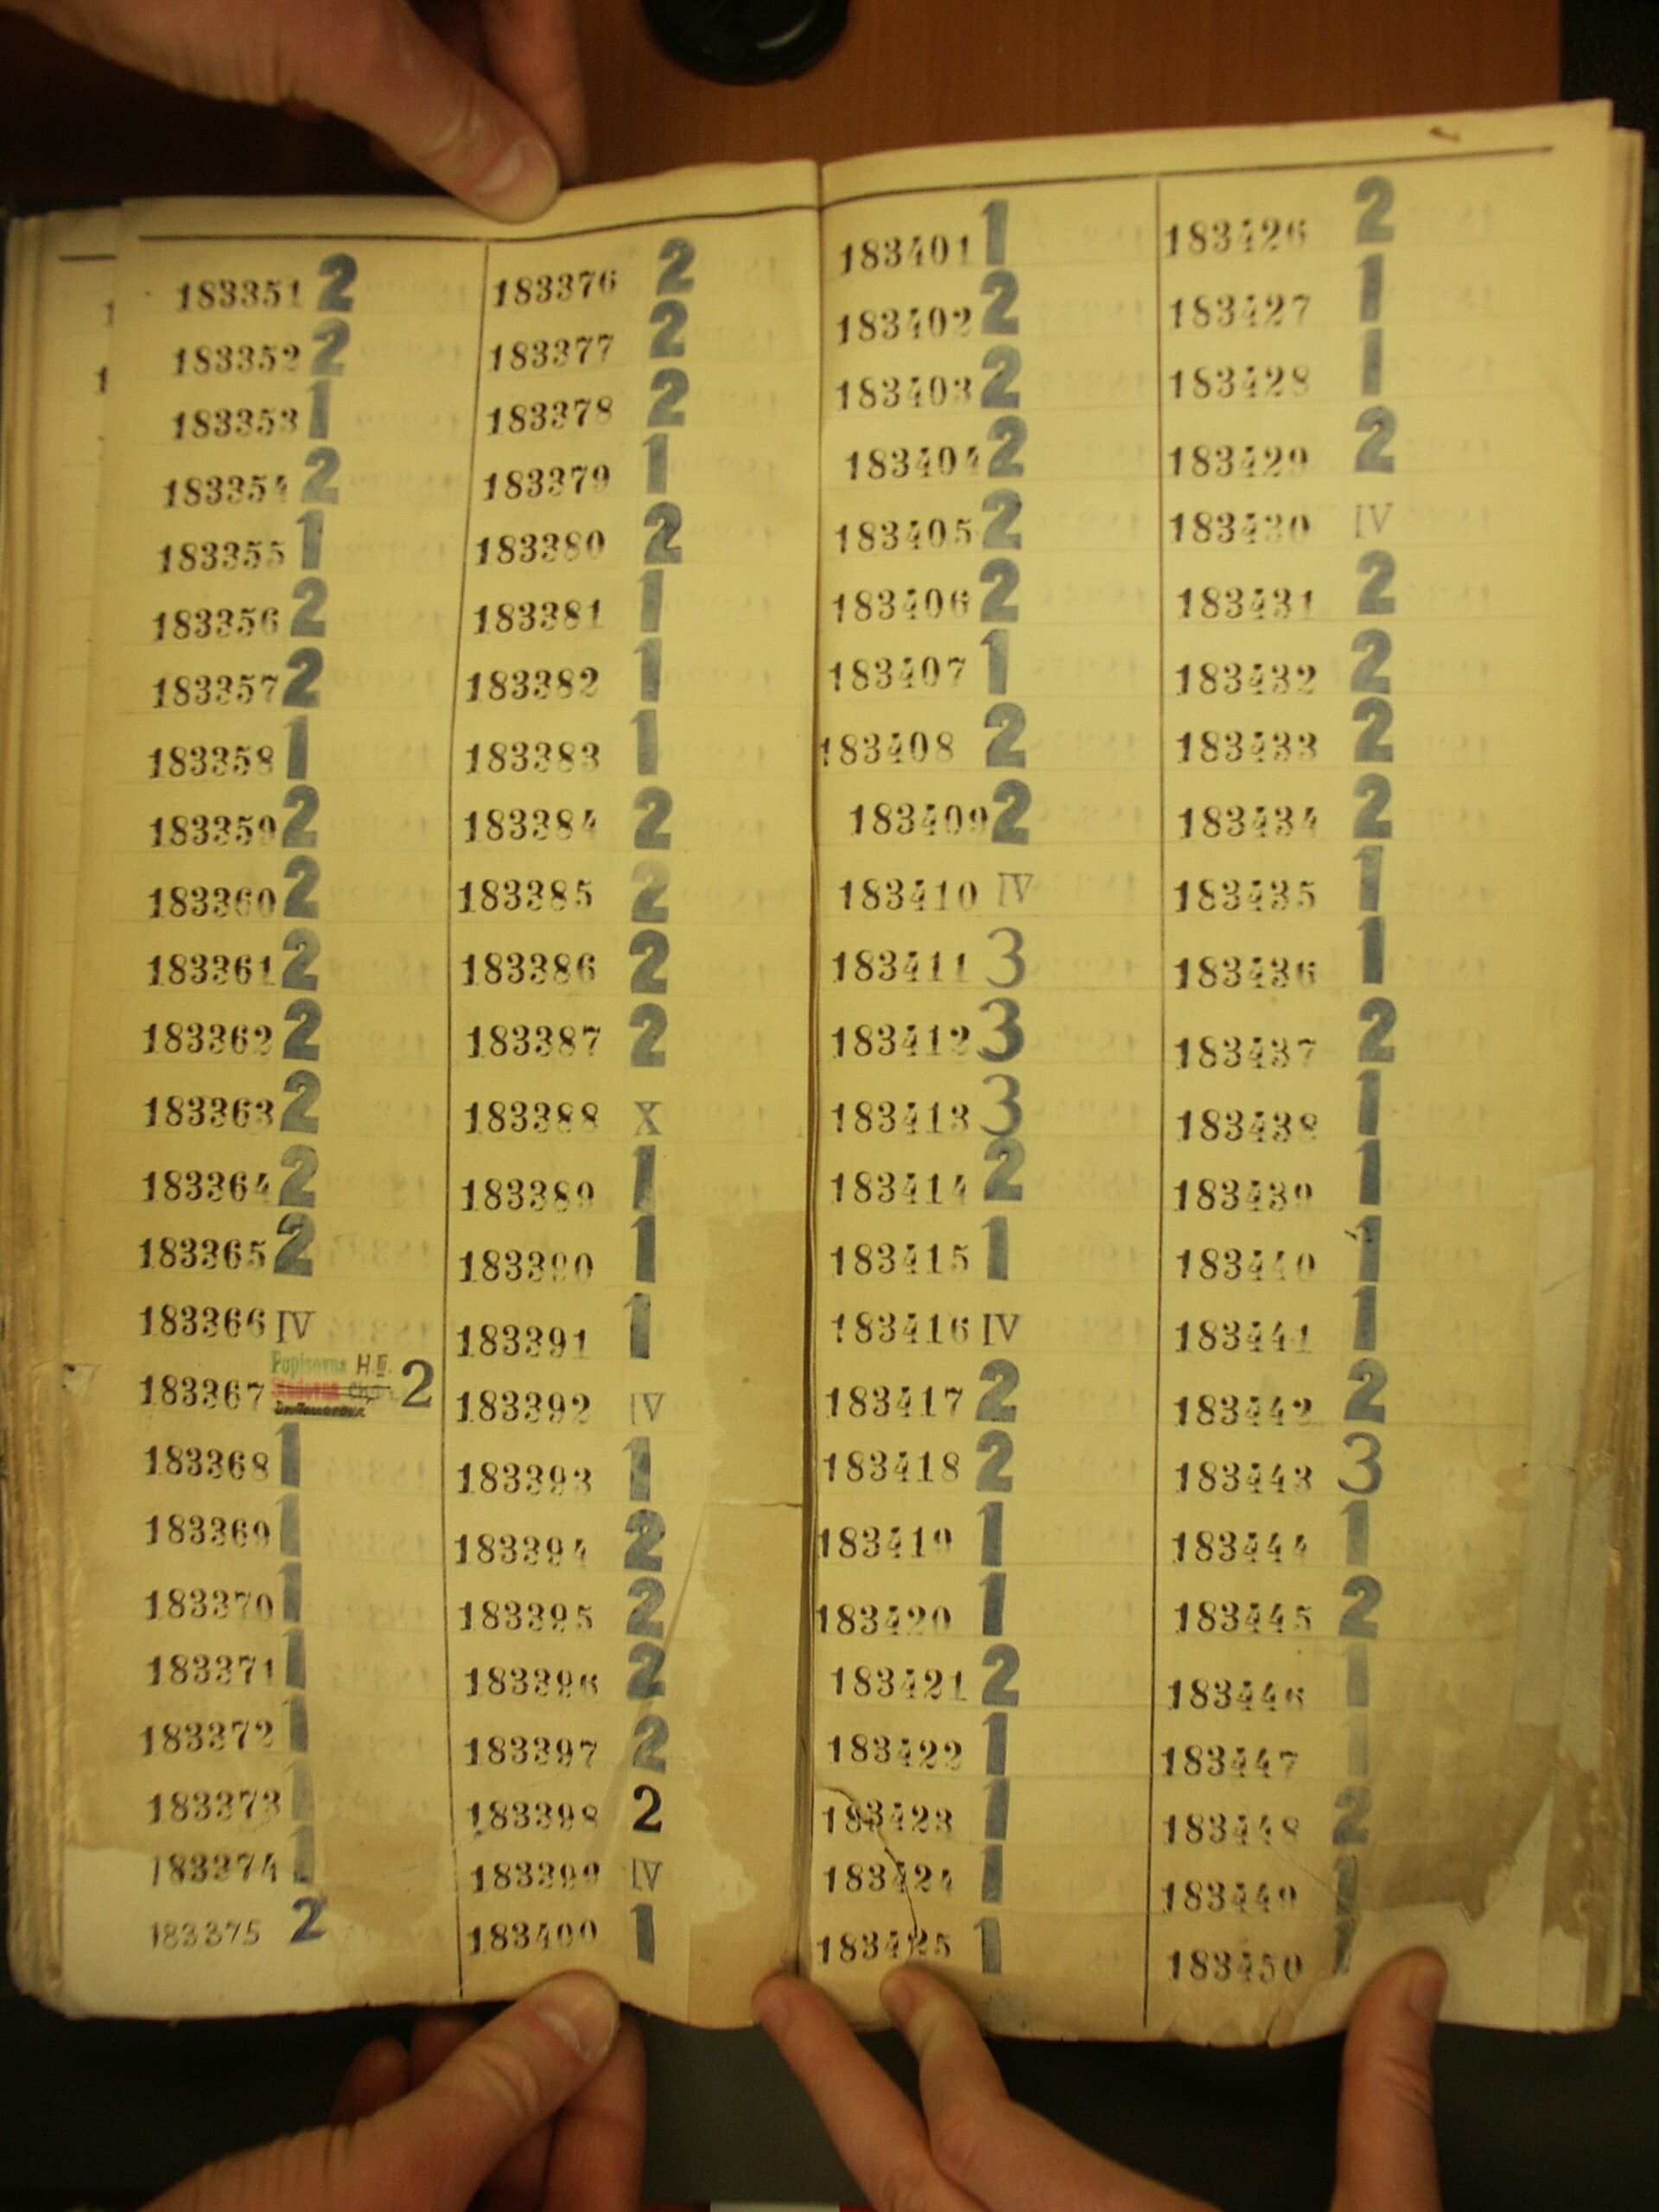 183351 2
183352 2
183353 1
183354 2
183355 1
183356 2
183357 2
183358 1
183359 2
183360 2
183361 2
183362 2
183363 2
183364 2
183365 2
183366 IV
Popisovna H II.
183367 Studovna 2
183368 1
183369 1
183370 1
183371 1
183372 1
183373 1
183374 1
183375 2
183376 2
183377 2
183378 2
183379 1
183380 2
183381 1
183382 1
183383 1
183384 2
183385 2
183386 2
183387 2
183388 X
183389 1
183390 1
183391 1
183392 IV
183393 1
183394 2
183395 2
183396 2
183397 2
183398 2
183399 IV
183400 1
183401 1
183402 2
183403 2
183404 2
183405 2
183406 2
183407 1
183408 2
183409 2
183410 IV
183411 3
183412 3
183413 3
183414 2
183415 1
183416 IV
183417 2
183418 2
183419 1
183420 1
183421 2
183422 1
183423 1
183424 1
183425 1
183426 2
183427 1
183428 1
183429 2
183430 IV
183431 2
183432 2
183433 2
183434 2
183435 1
183436 1
183437 2
183438 1
183439 1
183440 1
183441 1
183442 2
183443 3
183444 1
183445 2
183446 1
183447 1
183448 2
183449 1
183450 1